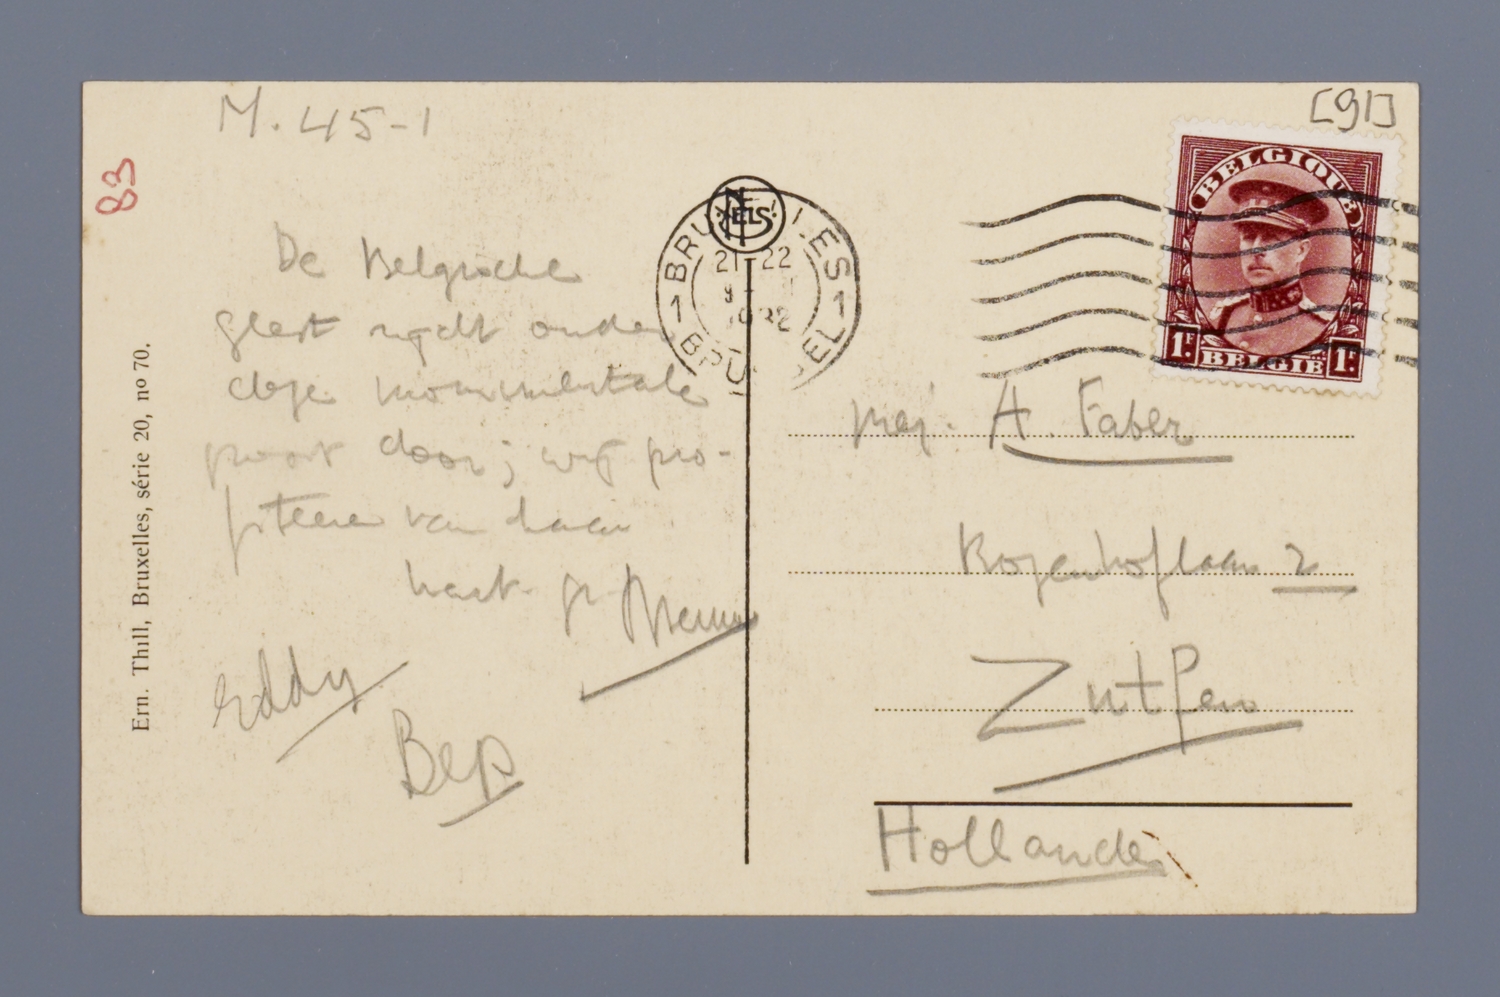 M. 45-1
[91]
83
BELGIQUE
1F
BELGIË
1F
NELS
BRUXELLES
21-22
1932
1 1
BRUSSEL
De Belgische
geest rijdt onder
deze monumentale
poort door; wij pro-
fiteeren van haar
Eddy
Bep
mej. A. Faber
Rozenhoflaan 2
Zutfen
Hollande
Ern. Thill, Bruxelles, série 20, no 70.